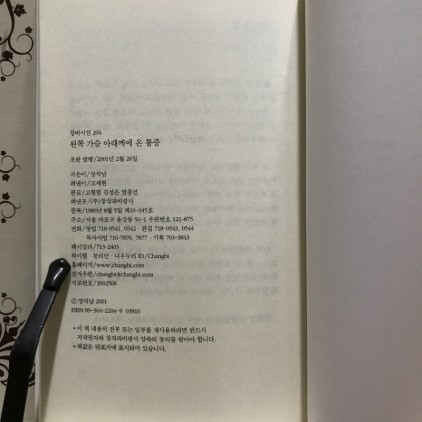 창비시선 204
왼쪽 가슴 아래께에 온 통증
초판 발행/2001년 2월 26일
지은이/장석남
펴낸이/고세현
편집/고형렬 김성은 염종선
펴낸곳/(주)창작과비평사
등록/1986년 8월 5일 제10-145호
주소/서울 마포구 용강동 50-1 우편번호 121-875
전화/영업 718-0541, 0542 · 편집 718-0543, 0544
독자사업 716-7876, 7877 · 기획 703-3843
팩시밀리/713-2403
하이텔 · 천리안 · 나우누리 ID/Changbi
홈페이지/www.changbi.com
전자우편/changbi@changbi.com
지로번호/3002568
ⓒ 장석남 2001
ISBN 89-364-2204-9 03810
* 이 책 내용의 전부 또는 일부를 재사용하려면 반드시
저작권자와 창작과비평사 양측의 동의를 받아야 합니다.
* 책값은 뒤표지에 표시되어 있습니다.